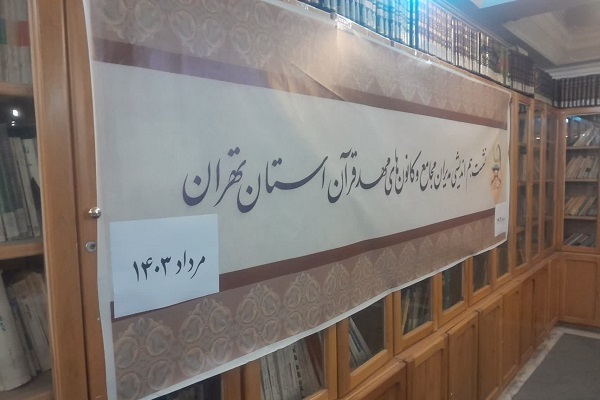 نشست هم اندیشی مدیران مجامع و کانون‌های مهد قرآن استان تهران
مرداد ۱۴۰۳